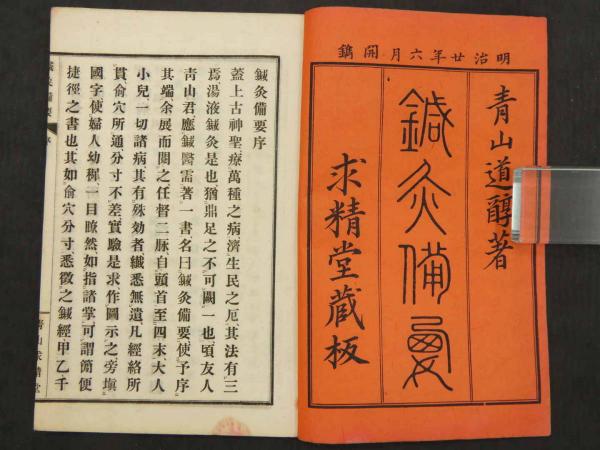 明治廿年六月開鐫
青山道醇著
鍼灸備要
求精堂蔵板
鍼灸備要序
蓋上古神聖療萬種之病濟生民之厄其法有三
焉湯液鍼灸是也猶鼎足之不可闕一也頃友人
青山君應鍼醫需著一書名曰鍼灸備要使予序
其端余展而閲之任督二脈自頭首至四末大人
小兒一切諸病其有殊効者纎悉無遺凡經絡所
貫俞穴所通分寸不差實驗是求作圖示之旁塡
國字使婦人幼穉一目瞭然如指諸掌可謂簡便
捷徑之書也其如俞穴分寸悉徵之鍼經甲乙千